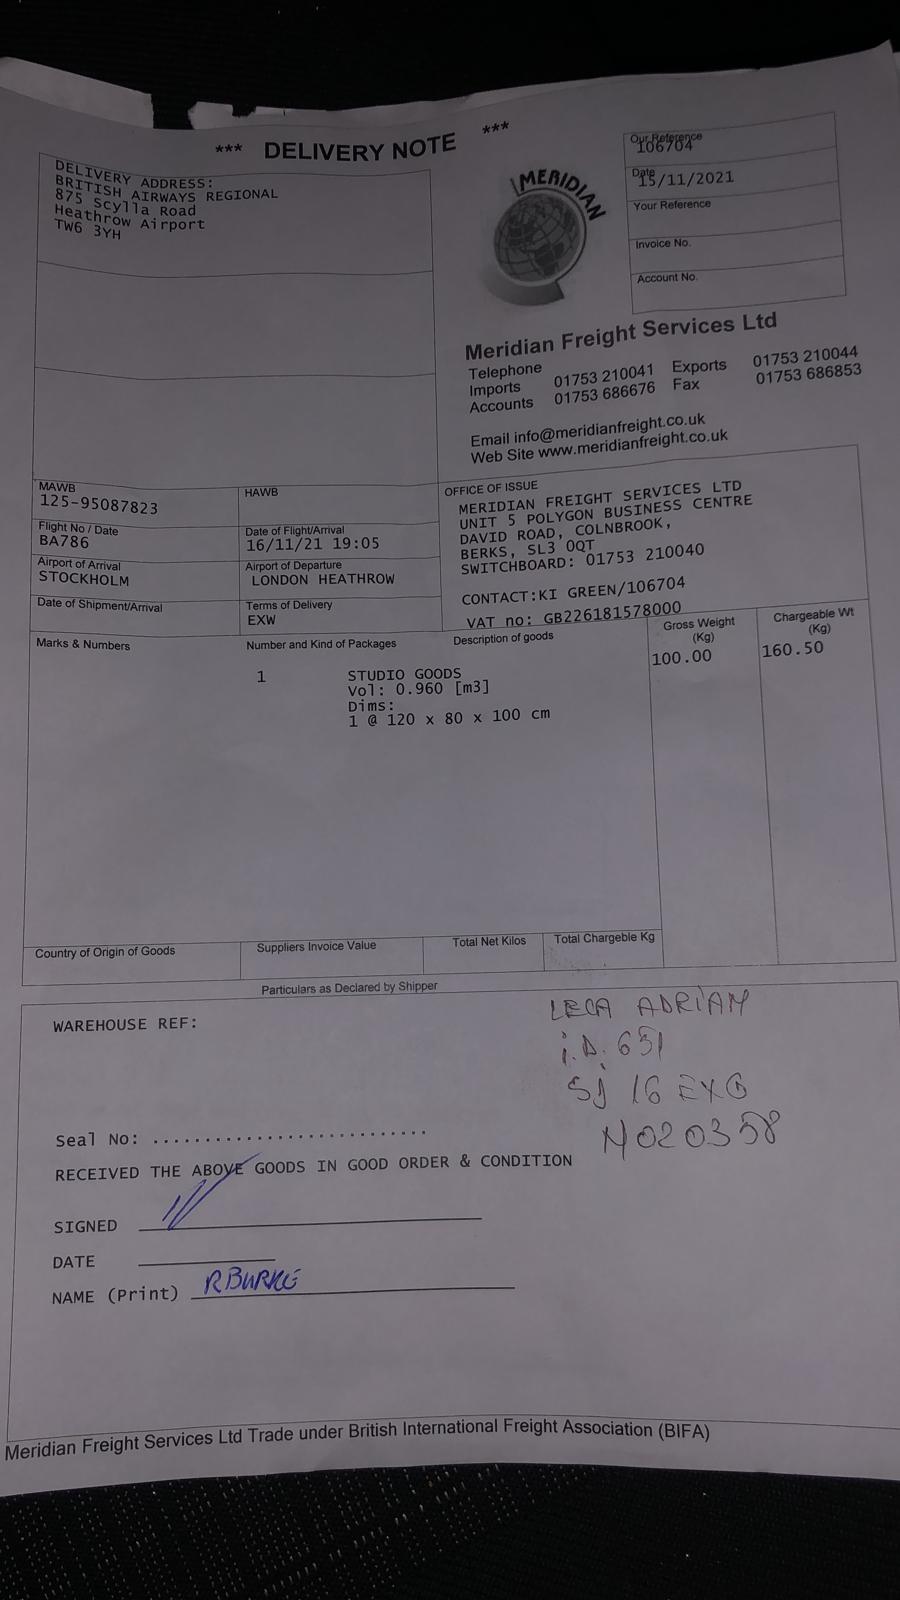 *** DELIVERY NOTE ***
DELIVERY ADDRESS:
BRITISH AIRWAYS REGIONAL
875 Scylla Road
Heathrow Airport
TW6 3YH
MERIDIAN
Our Reference
106704
Date
15/11/2021
Your Reference
Invoice No.
Account No.
Meridian Freight Services Ltd
Telephone
Imports 01753 210041 Exports 01753 210044
Accounts 01753 686676 Fax 01753 686853
Email info@meridianfreight.co.uk
Web Site www.meridianfreight.co.uk
MAWB
125-95087823
HAWB
Flight No / Date
BA786
Date of Flight/Arrival
16/11/21 19:05
Airport of Arrival
STOCKHOLM
Airport of Departure
LONDON HEATHROW
Date of Shipment/Arrival
Terms of Delivery
EXW
OFFICE OF ISSUE
MERIDIAN FREIGHT SERVICES LTD
UNIT 5 POLYGON BUSINESS CENTRE
DAVID ROAD, COLNBROOK,
BERKS, SL3 0QT
SWITCHBOARD: 01753 210040
CONTACT:KI GREEN/106704
VAT no: GB226181578000
Marks & Numbers
Number and Kind of Packages
Description of goods
Gross Weight
(Kg)
Chargeable Wt
(Kg)
1
STUDIO GOODS
Vol: 0.960 [m3]
Dims:
1 @ 120 x 80 x 100 cm
100.00
160.50
Country of Origin of Goods
Suppliers Invoice Value
Total Net Kilos
Total Chargeble Kg
Particulars as Declared by Shipper
WAREHOUSE REF:
LECA ADRIAN
i.D. 651
SJ 16 EXG
N020358
Seal No: ...........................
RECEIVED THE ABOVE GOODS IN GOOD ORDER & CONDITION
SIGNED
DATE
NAME (Print) R BURKE
Meridian Freight Services Ltd Trade under British International Freight Association (BIFA)